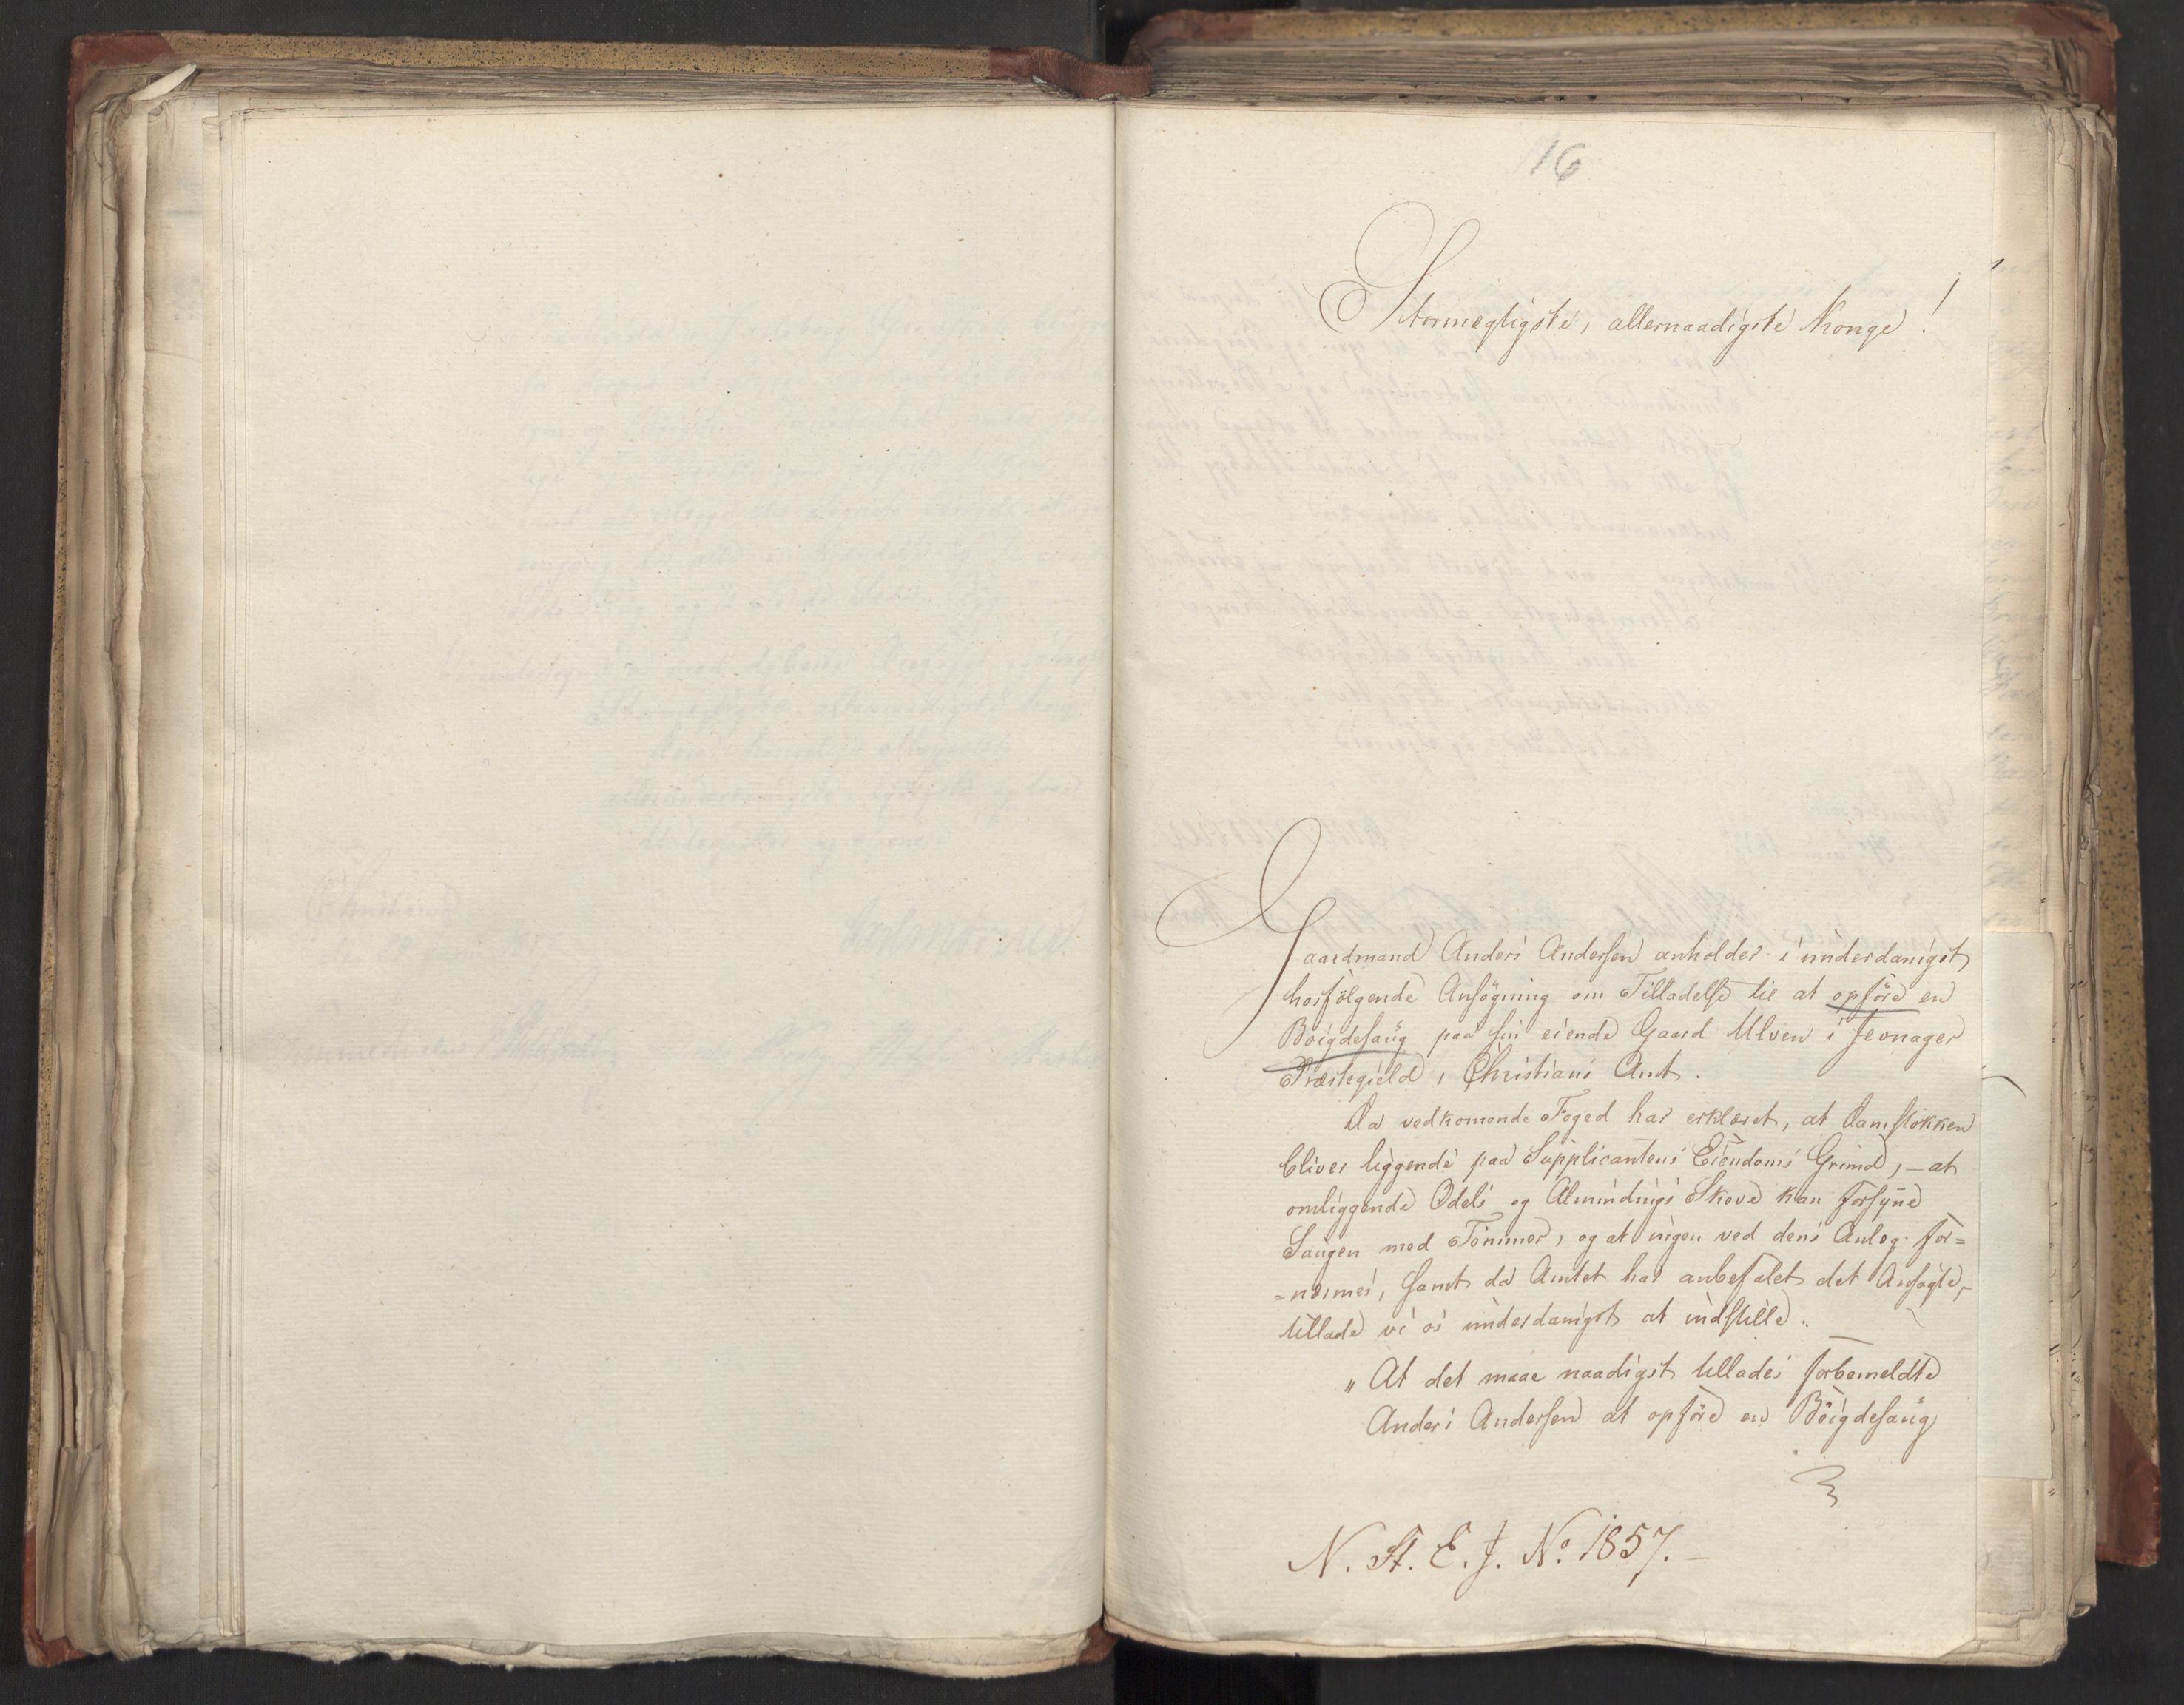 16
Stormægtigste, allernaadigste Konge!
Gaardmand Anders Andersen anholder i underdanigst
hosfölgende Ansögning om Tilladelse til at opföre en
Boigdesaug paa sin eiende Gaard Ulven i Jevnager
Præstegield, Christians Amt.
Da vedkomende Foged har erklæret, at Damstokken
bliver liggende paa Supplicantens Eiendoms Grund, – at
omliggende Odels og Almindings Skove kan forsyne
Saugen med Tömmer, og at ingen ved dens Anlæg for=
=nærmes, samt da Amtet har anbefalet det Ansögte,
tillade vi os underdanigst at indstille:
„At det maae naadigst tillades forbemeldte
Anders Andersen at opföre en Böigdesaug
N. St. E. J. No. 1857. –